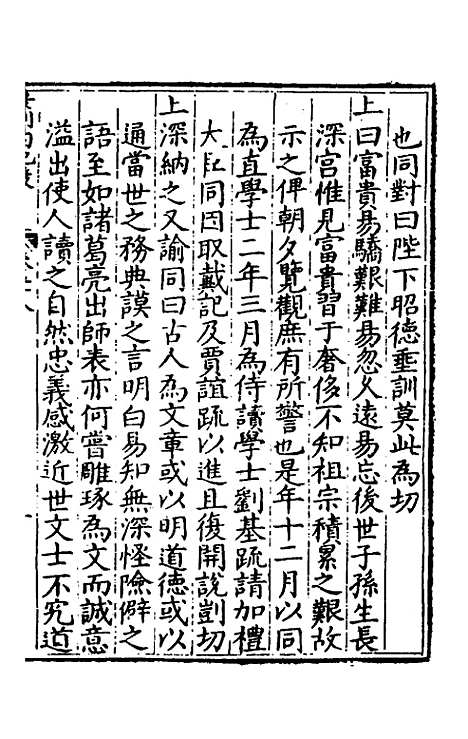 也同對曰陛下昭德垂訓莫此為切
上曰富貴易驕艱難易忽久遠易忘後世子孫生長
深宫惟見富貴習于奢侈不知祖宗積累之艱故
示之俾朝夕覽觀庶有所警也是年十二月以同
為直學士二年三月為侍讀學士劉基䟽請加禮
大臣同因取戴記及賈誼䟽以進且復開說剴切
上深納之又諭同曰古人為文章或以明道德或以
通當世之務典謨之言明白易知無深怪險僻之
語至如諸葛亮出師表亦何嘗雕琢為文而誠意
溢出使人讀之自然忠義感激近世文士不究道